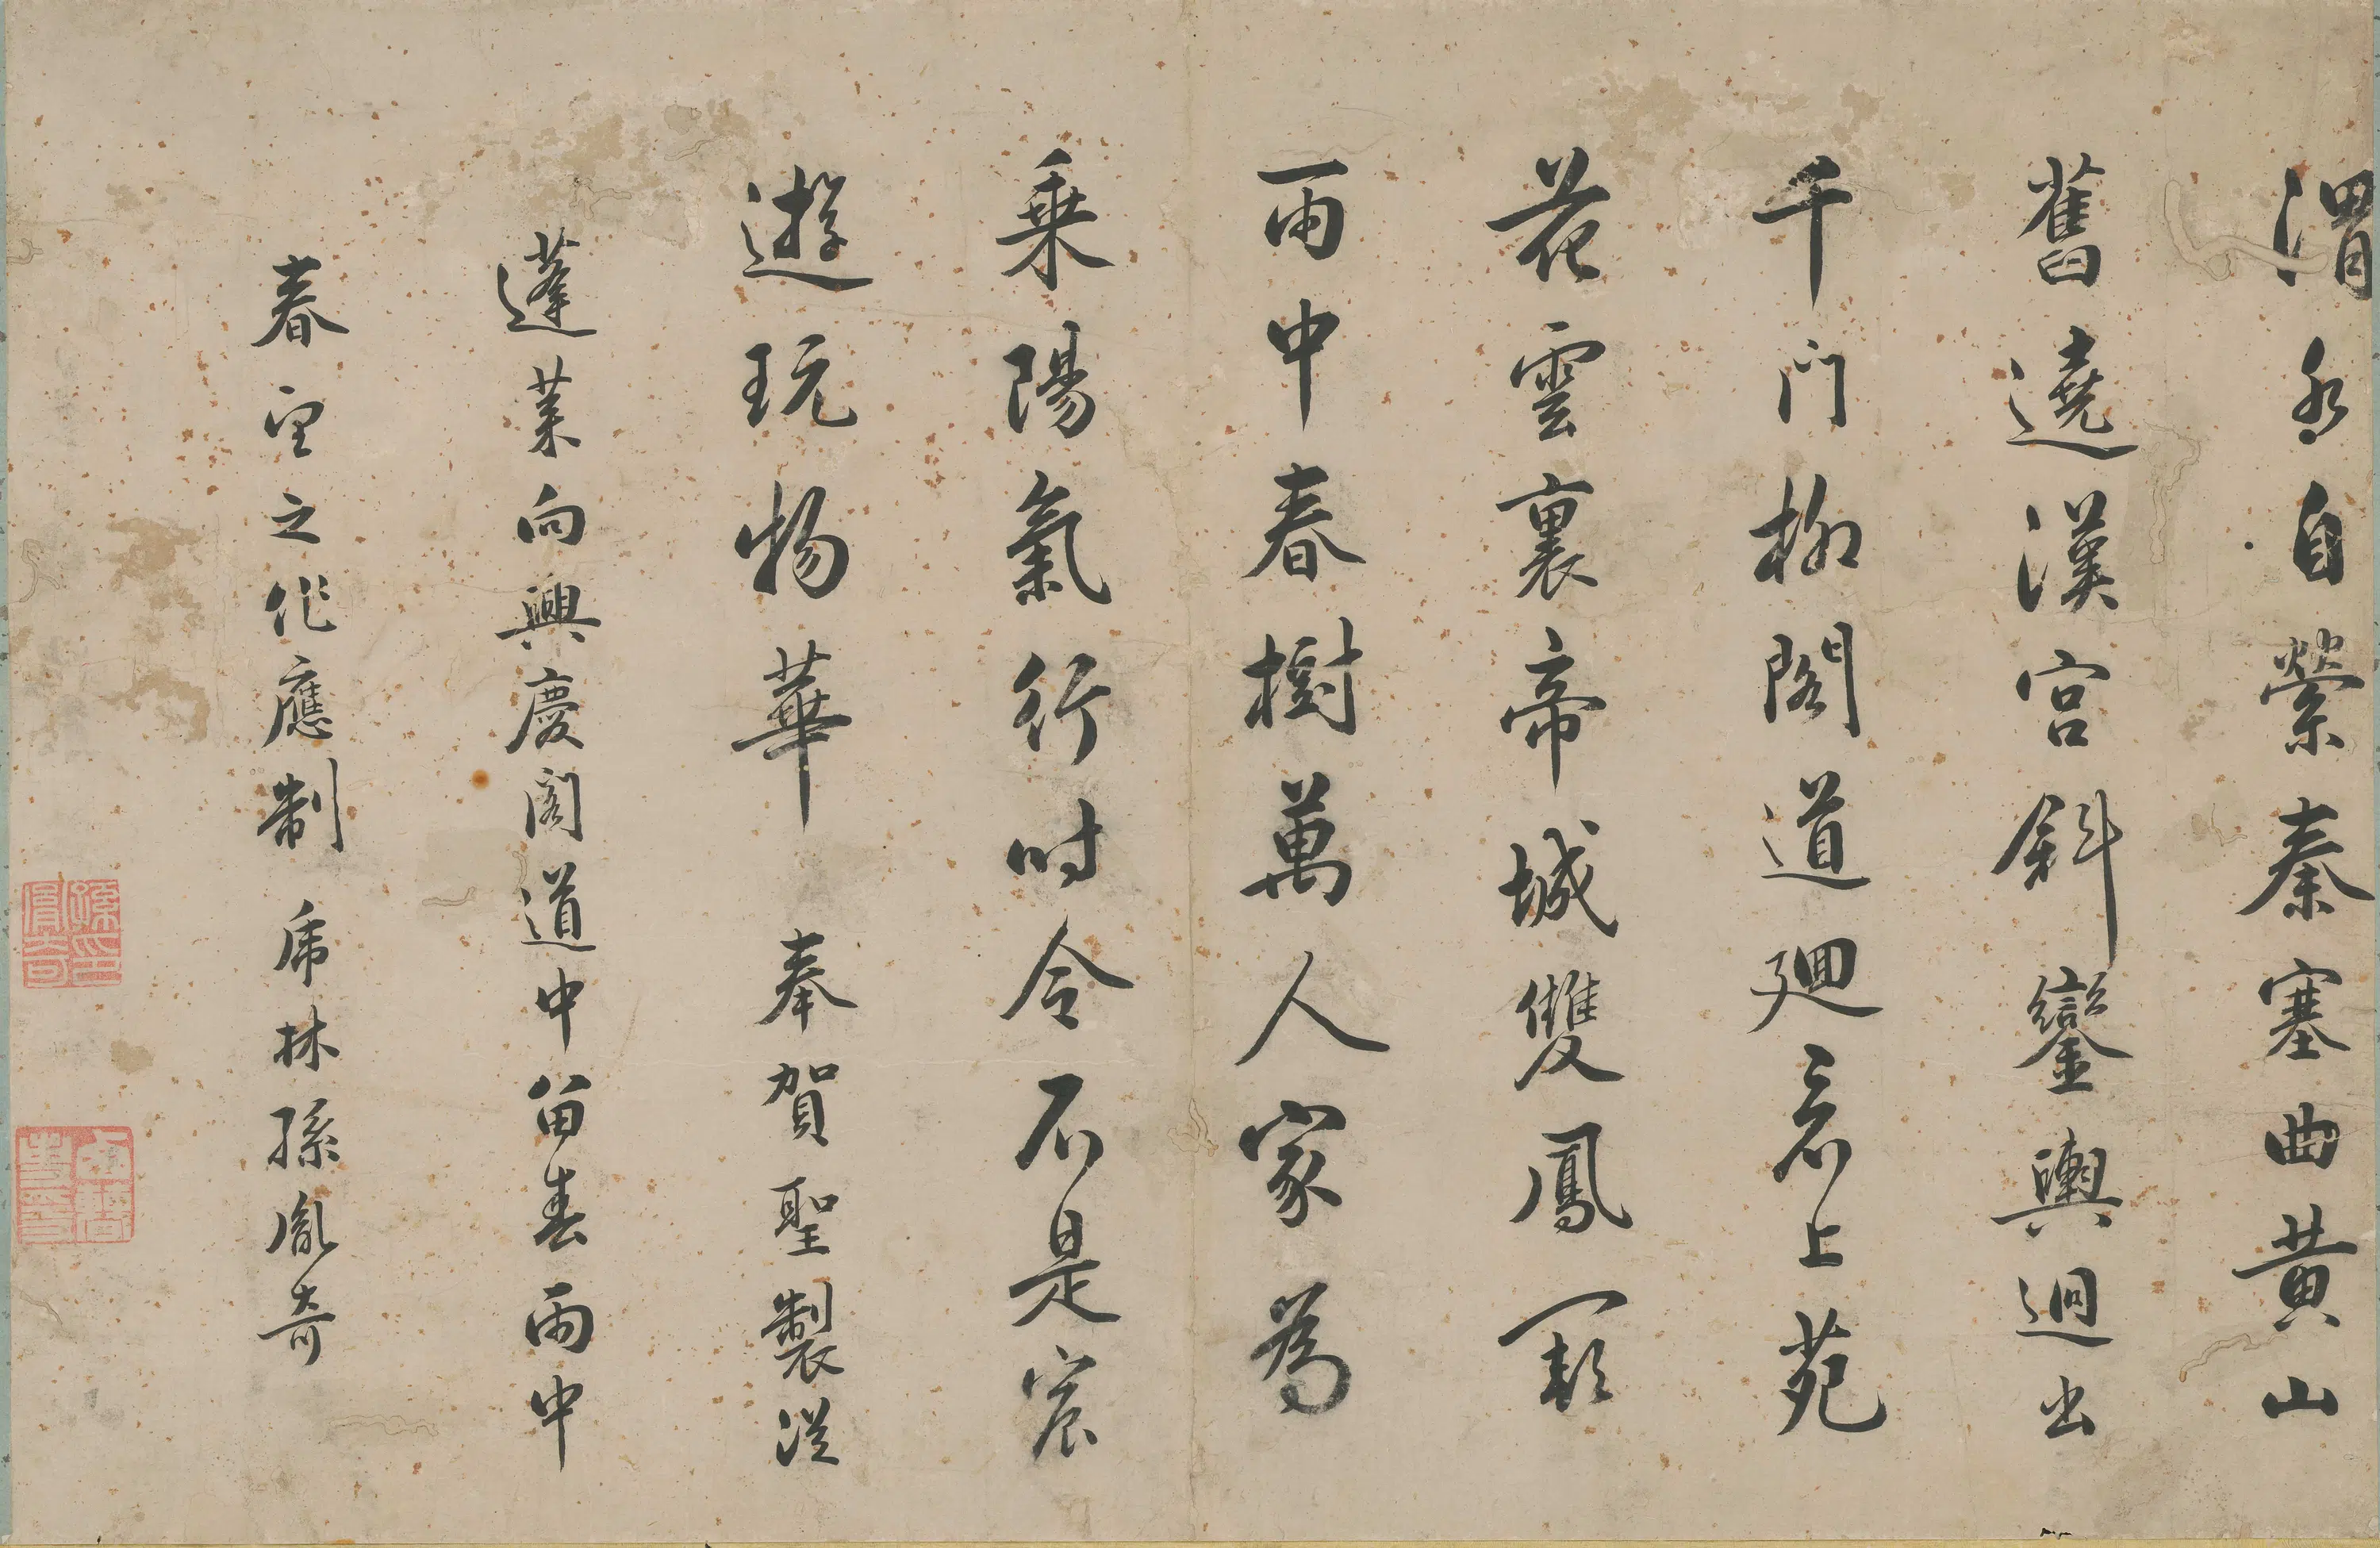 渭水自縈秦塞曲黄山
舊遶漢宮斜鑾輿迥出
千門柳閣道迴看上苑
花雲裏帝城雙鳳闕
雨中春樹萬人家為
乘陽氣行時令不是宸
遊玩物華 奉賀聖製從
蓬萊向興慶閣道中留春雨中
春望之作應制 虎林孫胤奇
孫印胤奇